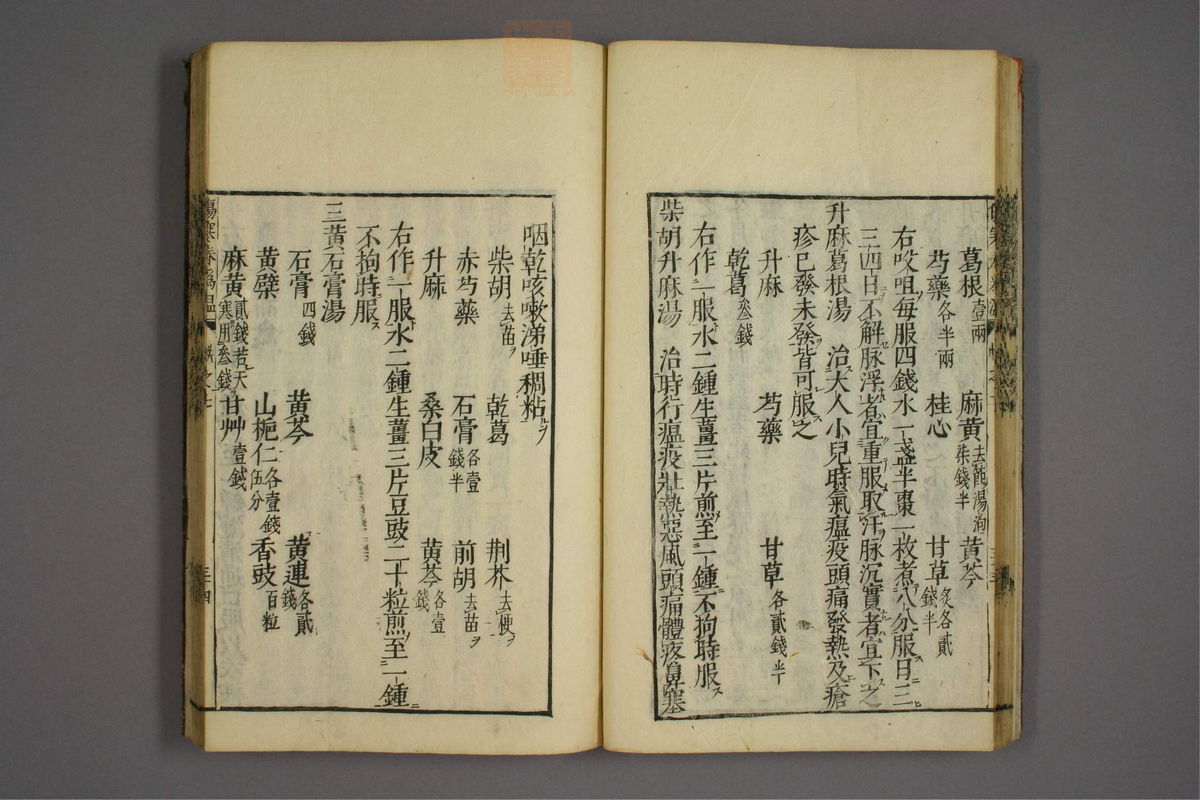 葛根壹兩 麻黃去節湯泡柒錢半 黃芩
芍藥各半兩 桂心 甘草炙各貳錢半
右㕮咀每服四錢水一盞半棗一枚煮八分服日二
三四日不解脉浮者宜重服取汗脉沉實者宜下之
升麻葛根湯 治大人小兒時氣瘟疫頭痛發熱及瘡
疹已發未發皆可服之
升麻 芍藥 甘草各貳錢半
乾葛叄錢
右作一服水二鍾生薑三片煎至一鍾不狗時服
柴胡升麻湯 治時行瘟疫壯熱惡風頭痛體疼鼻塞
咽乾咳嗽涕唾稠粘
柴胡去苗 乾葛 荆芥去梗
赤芍藥 石膏各壹錢半 前胡去苗
升麻 桑白皮 黃芩各壹錢
右作一服水二鍾生薑三片豆豉二十粒煎至一鍾
不狗時服
三黃石膏湯
石膏四錢 黃芩 黃連各貳錢
黃蘗 山梔仁各壹錢伍分 香豉百粒
麻黃貳錢若天寒用叄錢 甘艸壹錢